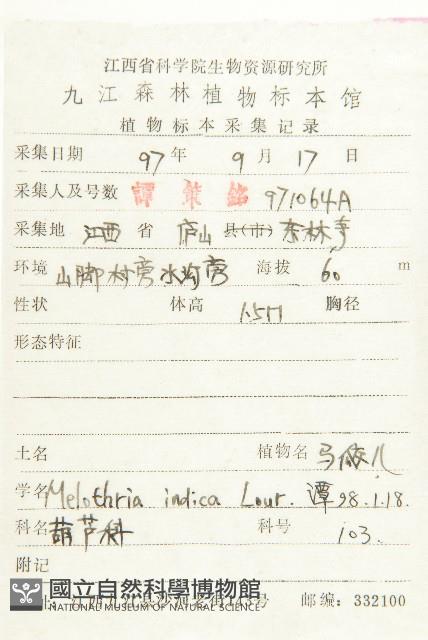 江西省科学院生物资源研究所
九江森林植物标本馆
植物标本采集记录
采集日期 97 年 9 月 17 日
采集人及号数 譚策銘 971064A
采集地 江西 省 庐山 县(市) 东林寺
环境 山脚村旁水沟旁 海拔 60 m
性状 体高 1.5m 胸径
形态特征
土名 植物名 马㼎儿
学名 Melothria indica Lour. 谭 98.1.18.
科名 葫芦科 科号 103.
附记
國立自然科學博物館
NATIONAL MUSEUM OF NATURAL SCIENCE
号 邮编：332100